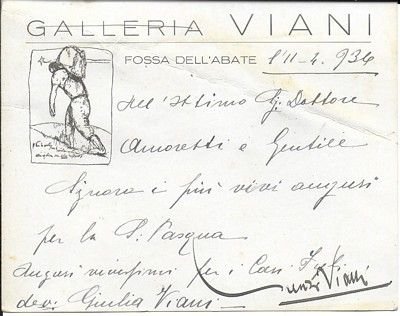 GALLERIA VIANI
FOSSA DELL'ABATE l'11-4. 934
All'Ottimo Sig. Dottore
Amoretti e Gentile
Signora i più vivi auguri
per la S. Pasqua
Auguri vivissimi per i Cari Figli
dev. Giulia Viani
Viani